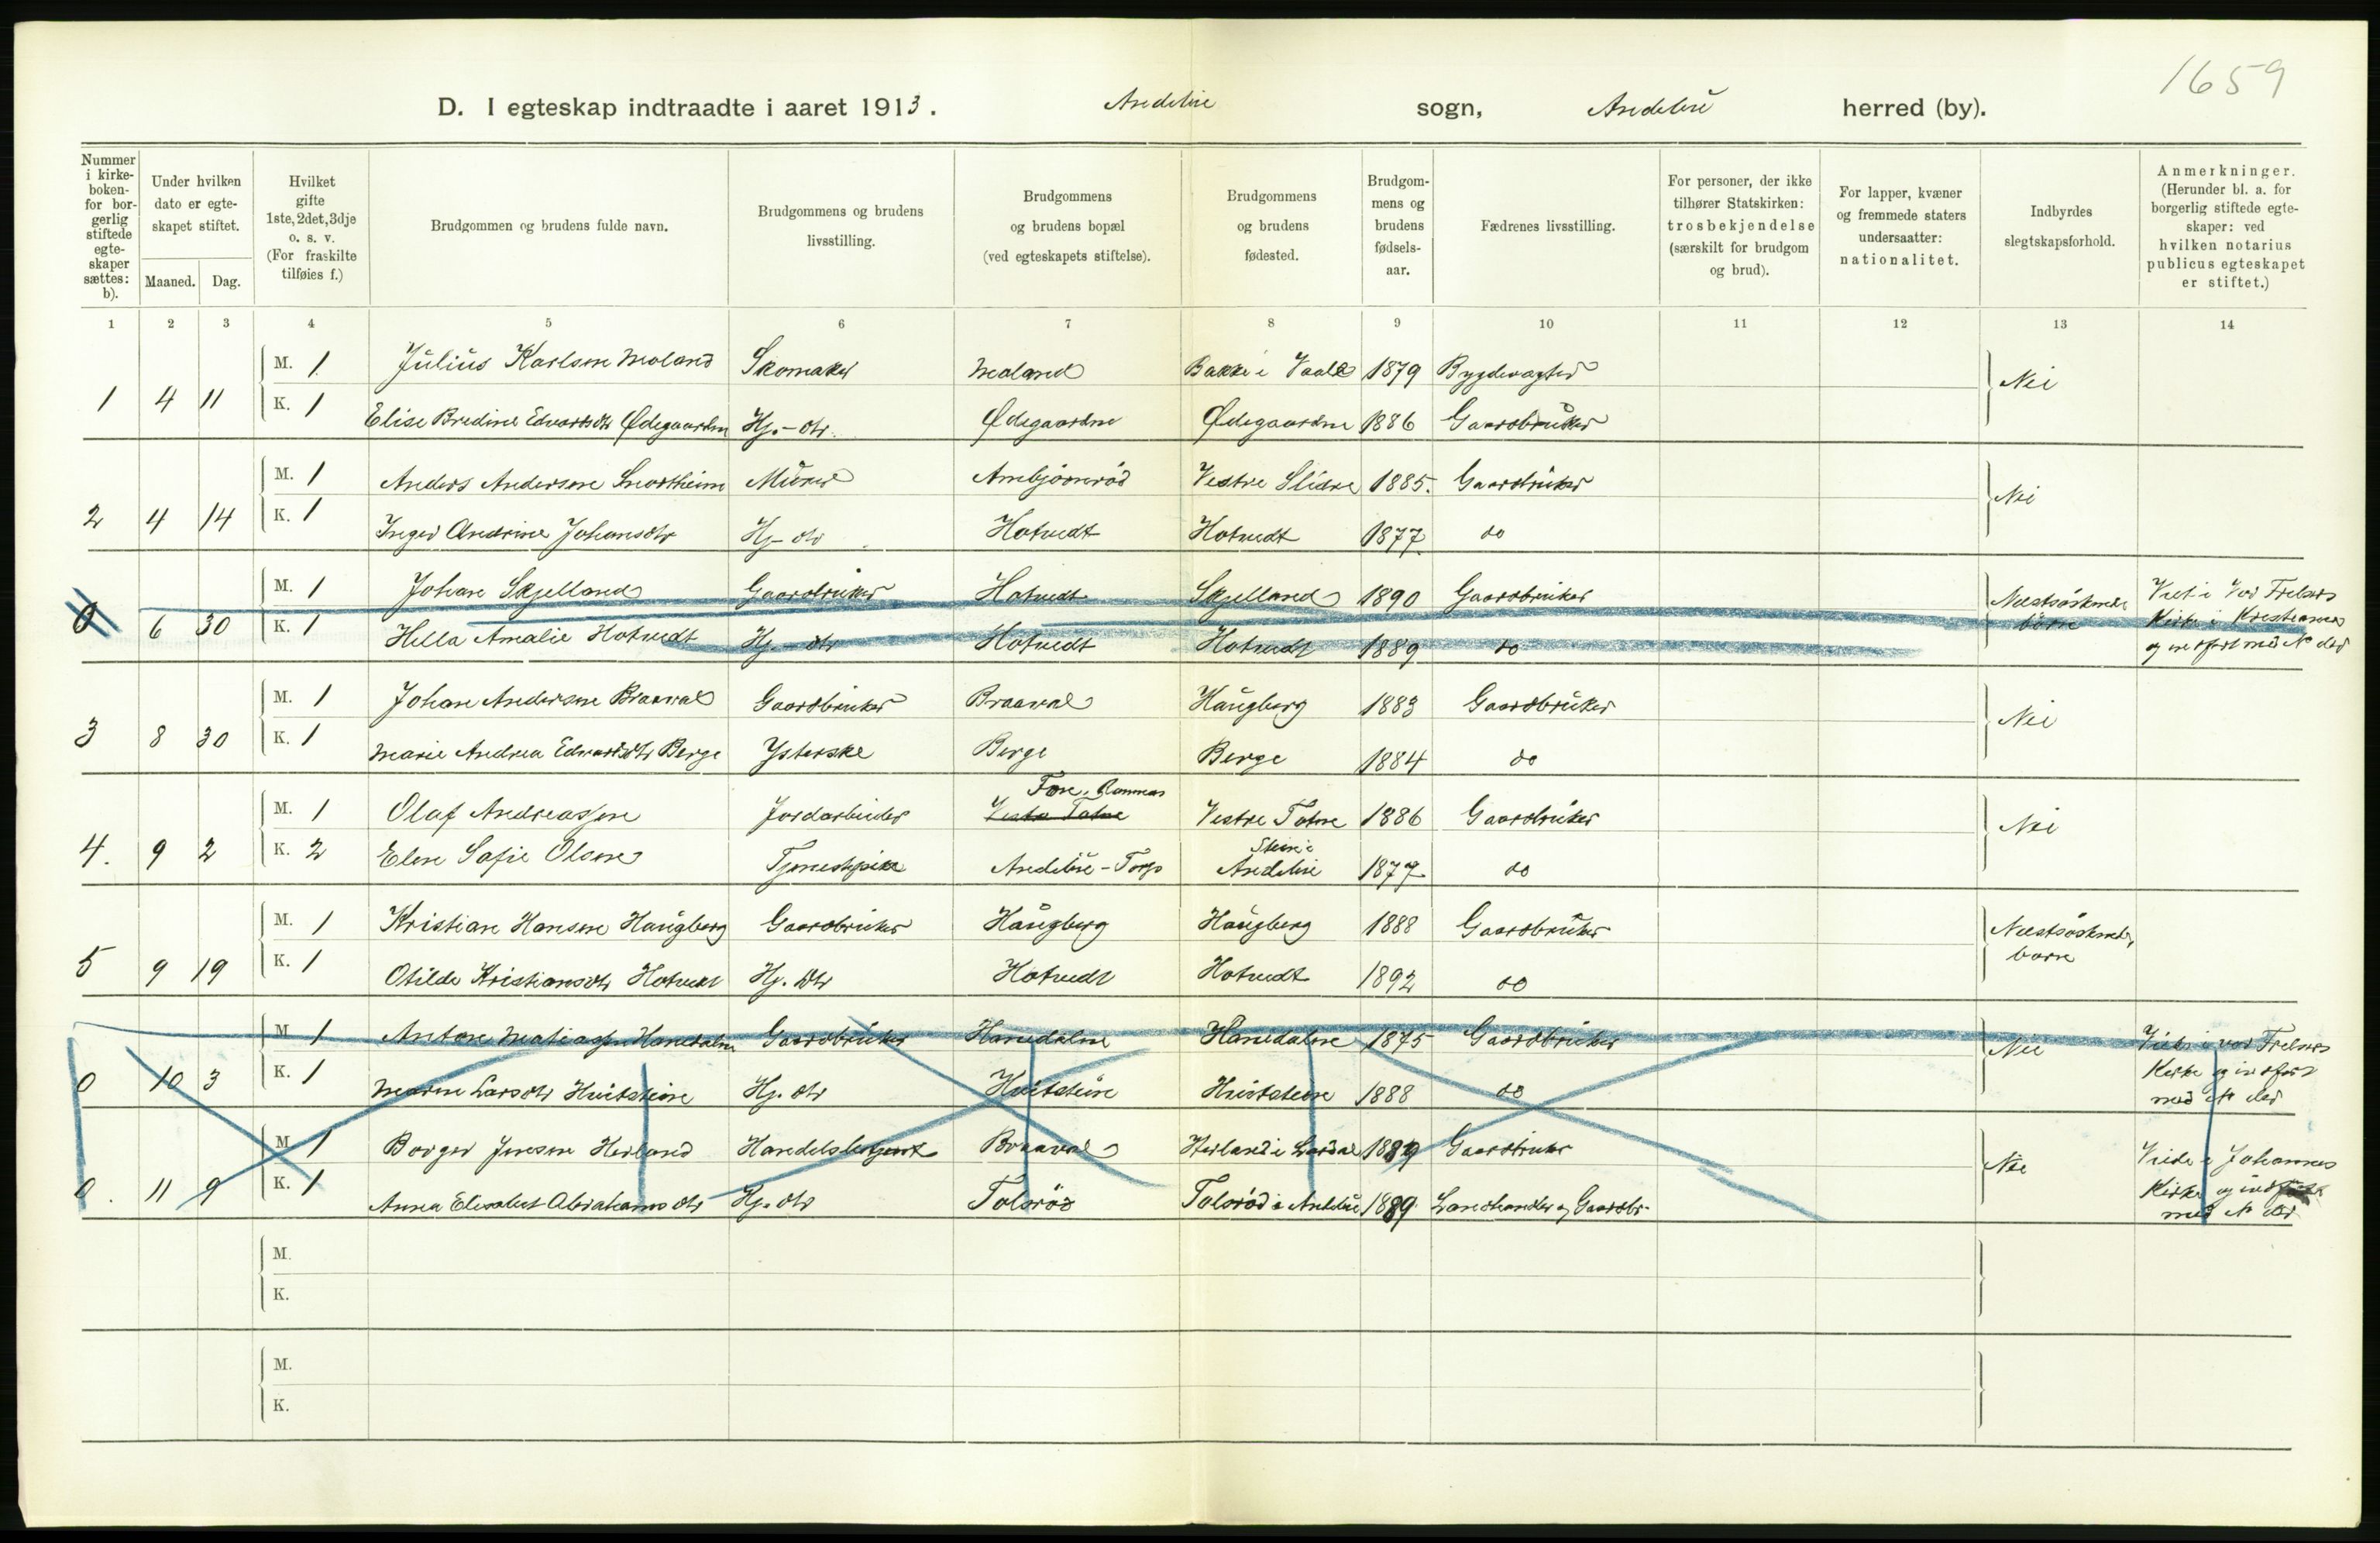 1659
D. I egteskap indtraadte i aaret 1913. Andebu sogn, Andebu herred (by).
Nummer i kirkeboken- for borgerlig stiftede egteskaper sættes: b).
Under hvilken dato er egteskapet stiftet.
Maaned. Dag.
Hvilket gifte 1ste, 2det, 3dje o. s. v. (For fraskilte tilføies f.)
Brudgommen og brudens fulde navn.
Brudgommens og brudens livsstilling.
Brudgommens og brudens bopæl (ved egteskapets stiftelse).
Brudgommens og brudens fødested.
Brudgommens og brudens fødselsaar.
Fædrenes livsstilling.
For personer, der ikke tilhører Statskirken: trosbekjendelse (særskilt for brudgom og brud).
For lapper, kvæner og fremmede staters undersaatter: nationalitet.
Indbyrdes slegtskapsforhold.
Anmerkninger. (Herunder bl. a. for borgerlig stiftede egteskaper: ved hvilken notarius publicus egteskapet er stiftet.)
1 2 3 4 5 6 7 8 9 10 11 12 13 14
M. 1 Julius Karlsen Moland Skomaker Moland Bakke i Vaale 1879 Bygdevagter
1 4 11 Nei
K. 1 Elise Bredine Edvardsdtr Ødegaarden Hj.-dtr. Ødegaarden Ødegaarden 1886 Gaardbruker
M. 1 Anders Andersen Snortheim Murer Arnbjörnröd Vestre Slidre 1885. Gaardbruker
2 4 14 Nei
K. 1 Inger Andrine Johansdtr Hj-dtr Hotvedt Hotvedt 1877 do
M. 1 Johan Skjelland Gaardbruker Hotvedt Skjelland 1890 Gaardbruker Næstsöskende börn Viet i Vor Frelsers
0 6 30 Kirke i Kristiania
K. 1 Hella Amalie Hotvedt Hj.-dtr Hotvedt Hotvedt 1889 do og indført med No der
M. 1 Johan Andersen Braaval Gaardbruker Braaval Haugberg 1883 Gaardbruker
3 8 30 Nei
K. 1 Marie Andrea Edvardsdtr Berge Ysterske Berge Berge 1884 do
M. 1 Olaf Andreassen Jordarbeider Vestre Toten Fon, Ramnes Vestre Toten 1886 Gaardbruker
4. 9 2 Nei
K. 2 Elen Sofie Olsen Tjenestepike Andebu - Torp Stein i Andebu 1877 do
M. 1 Kristian Hansen Haugberg Gaardbruker Haugberg Haugberg 1888 Gaardbruker
5 9 19 Næstsöskende, börn
K. 1 Otilde Kristiansdtr Hotvedt Hj. Dtr Hotvedt Hotvedt 1892 do
M. 1 Anton Matiassen Hanedalen Gaardbruker Hanedalen Hanedalen 1875 Gaardbruker Nei Viet i vor Frelsers
0 10 3 Kirke og indført
K. 1 Maren Larsdtr Hvitstein Hj. dtr Hvitstein Hvitstein 1888 do med No der
M. 1 Borger Jensen Herland Handelsbetjent Braaval Herland i Lardal 1889 Gaardbruker Nei Viede i Johannes
0. 11 9 Kirke og indført
K. 1 Anna Elisabet Abrahamsdtr Hj. dtr Tolsröd Tolsröd i Andebu 1889 Landhandler og Gaardbr. med No der
M.
K.
M.
K.